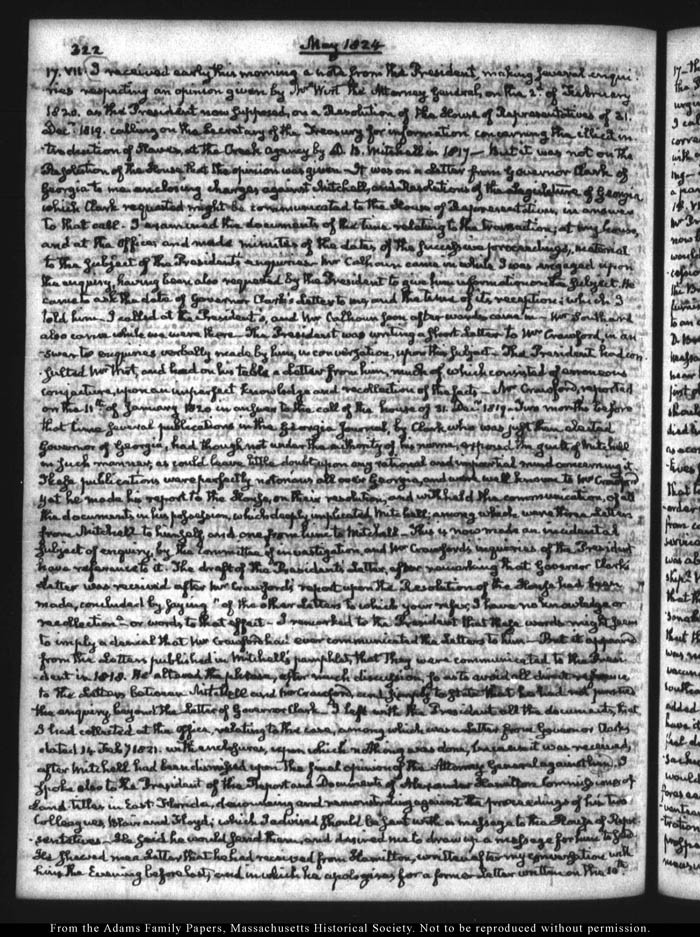 322
May 1824
17. VII. I received early this morning a note from the President, making several enqui-
ries respecting an opinion given by Mr Wirt the Attorney General, on the 2d of February
1820. as the President now supposed, on a Resolution of the House of Representatives of 31
Decr 1819. calling on the Secretary of the Treasury for information concerning the illicit in-
troduction of Slaves, at the Creek Agency by D. B. Mitchell in 1817 — But it was not on the
Resolution of the House that the opinion was given. It was on a letter from Governor Clark of
Georgia to me enclosing charges against Mitchell, and Resolutions of the Legislature of Georgia
which Clark requested might be communicated to the House of Representatives, in answer
to that call. I examined the documents of the time relating to the transaction, at my house,
and at the Office; and made minutes of the dates of the successive proceedings, material
to the subject of the President's enquiries. Mr Calhoun came in while I was engaged upon
the enquiry, having been also requested by the President to give him information on the subject. He
came to ask the date of Governor Clark's Letter to me, and the time of its reception; which I
told him. I called at the President's, and Mr Calhoun soon afterwards came in — Mr Southard
also came while we were there. The President was writing a short Letter to Mr Crawford, in an-
swer to enquiries verbally made by him, in conversation, upon this subject. The President had con-
sulted Mr Wirt, and had on his table a Letter from him, much of which consisted of erroneous
conjecture, upon an imperfect knowledge and recollection of the facts — Mr Crawford, reported
on the 11th of January 1820 in answer to the call of the house of 31. Decr 1819. Two months before
that time several publications in the Georgia Journal, by Clark who was just then elected
Governor of Georgia, had though not under the authority of his name, exposed the guilt of Mitchell
in such manner, as could leave little doubt upon any rational and impartial mind concerning it.
These publications were perfectly notorious all over Georgia, and were well known to Mr Crawford
yet he made his report to the House, on their resolution, and withheld the communication, of all
the documents in his possession, which deeply implicated Mitchell; among which were three Letters
from Mitchell to himself, and one from him to Mitchell — This is now made an incidental
subject of enquiry, by the Committee of investigation, and Mr Crawford's inquiries of the President
have reference to it. The draft of the President's Letter, after remarking that Governor Clark's
Letter was received after Mr Crawford's report upon the Resolution of the House had been
made, concluded by saying "of the other Letters to which you refer, I have no knowledge or
recollection" or words to that effect — I remarked to the President that these words might seem
to imply a denial that Mr Crawford had ever communicated the Letters to him — But it appeared
from the Letters published in Mitchell's pamphlet, that they were communicated to the Presi-
dent in 1818. He altered the phrase, after much discussion, so as to avoid all direct reference
to the Letters between Mitchell and Mr Crawford, and simply to state that he had not pursued
the enquiry beyond the Letter of Governor Clark. I left with the President all the documents, that
I had collected at the office, relating to this case, among which was a Letter from Governor Clark
dated 14. Feby 1821. with enclosures, upon which nothing was done, because it was received,
after Mitchell had been dismissed upon the final opinion of the Attorney General against him. I
spoke also to the President of the Report and Documents of Alexander Hamilton Commissioner of
Land titles in East Florida, denouncing and remonstrating against the proceedings of his two
Colleagues Blair and Floyd; which I advised should be sent with a message to the House of Repre-
sentatives. He said he would send them, and desired me to draw up a message for him to send.
He shewed me a Letter that he had received from Hamilton, written after my conversation with
him, the Evening before last; and in which he apologises for a former Letter written on the 10th